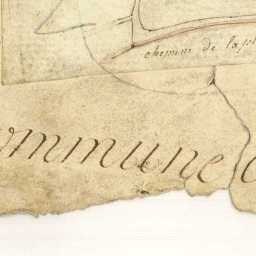 chemin de la
ommune